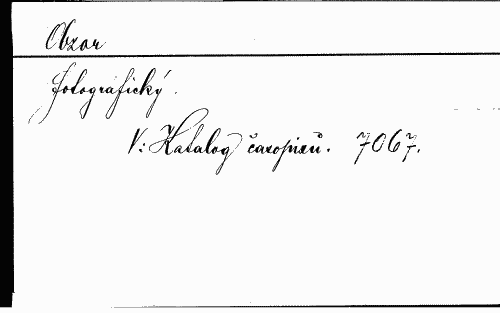 Obzor
fotografický.
V: Katalog časopisů. 7067.